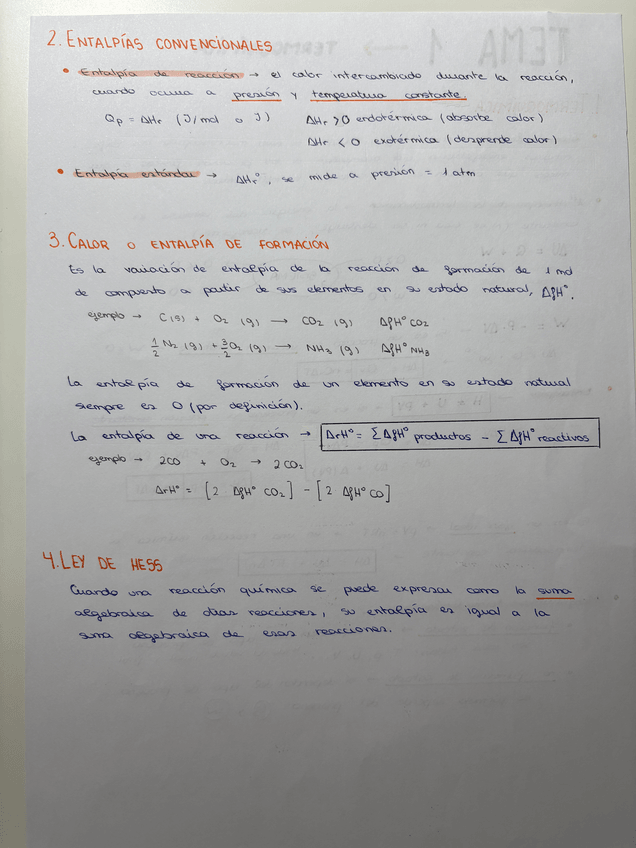 2. ENTALPÍAS CONVENCIONALES
• Entalpía de reacción → el calor intercambiado durante la reacción,
cuando ocurra a presión y temperatura constante.
Qp = ΔHr (J/mol o J) ΔHr > 0 endotérmica (absorbe calor)
ΔHr < 0 exotérmica (desprende calor)
• Entalpía estándar → ΔHr°, se mide a presión = 1 atm
3. CALOR O ENTALPÍA DE FORMACIÓN
Es la variación de entalpía de la reacción de formación de 1 mol
de compuesto a partir de sus elementos en su estado natural, ΔfH°.
ejemplo → C(s) + O₂ (g) → CO₂ (g) ΔfH° CO₂
1/2 N₂ (g) + 3/2 O₂ (g) → NH₃ (g) ΔfH° NH₃
La entalpía de formación de un elemento en su estado natural
siempre es 0 (por definición).
La entalpía de una reacción → ΔrH° = Σ ΔfH° productos - Σ ΔfH° reactivos
ejemplo → 2CO + O₂ → 2 CO₂
ΔrH° = [2 ΔfH° CO₂] - [2 ΔfH° CO]
4. LEY DE HESS
Cuando una reacción química se puede expresar como la suma
algebraica de otras reacciones, su entalpía es igual a la
suma algebraica de esas reacciones.